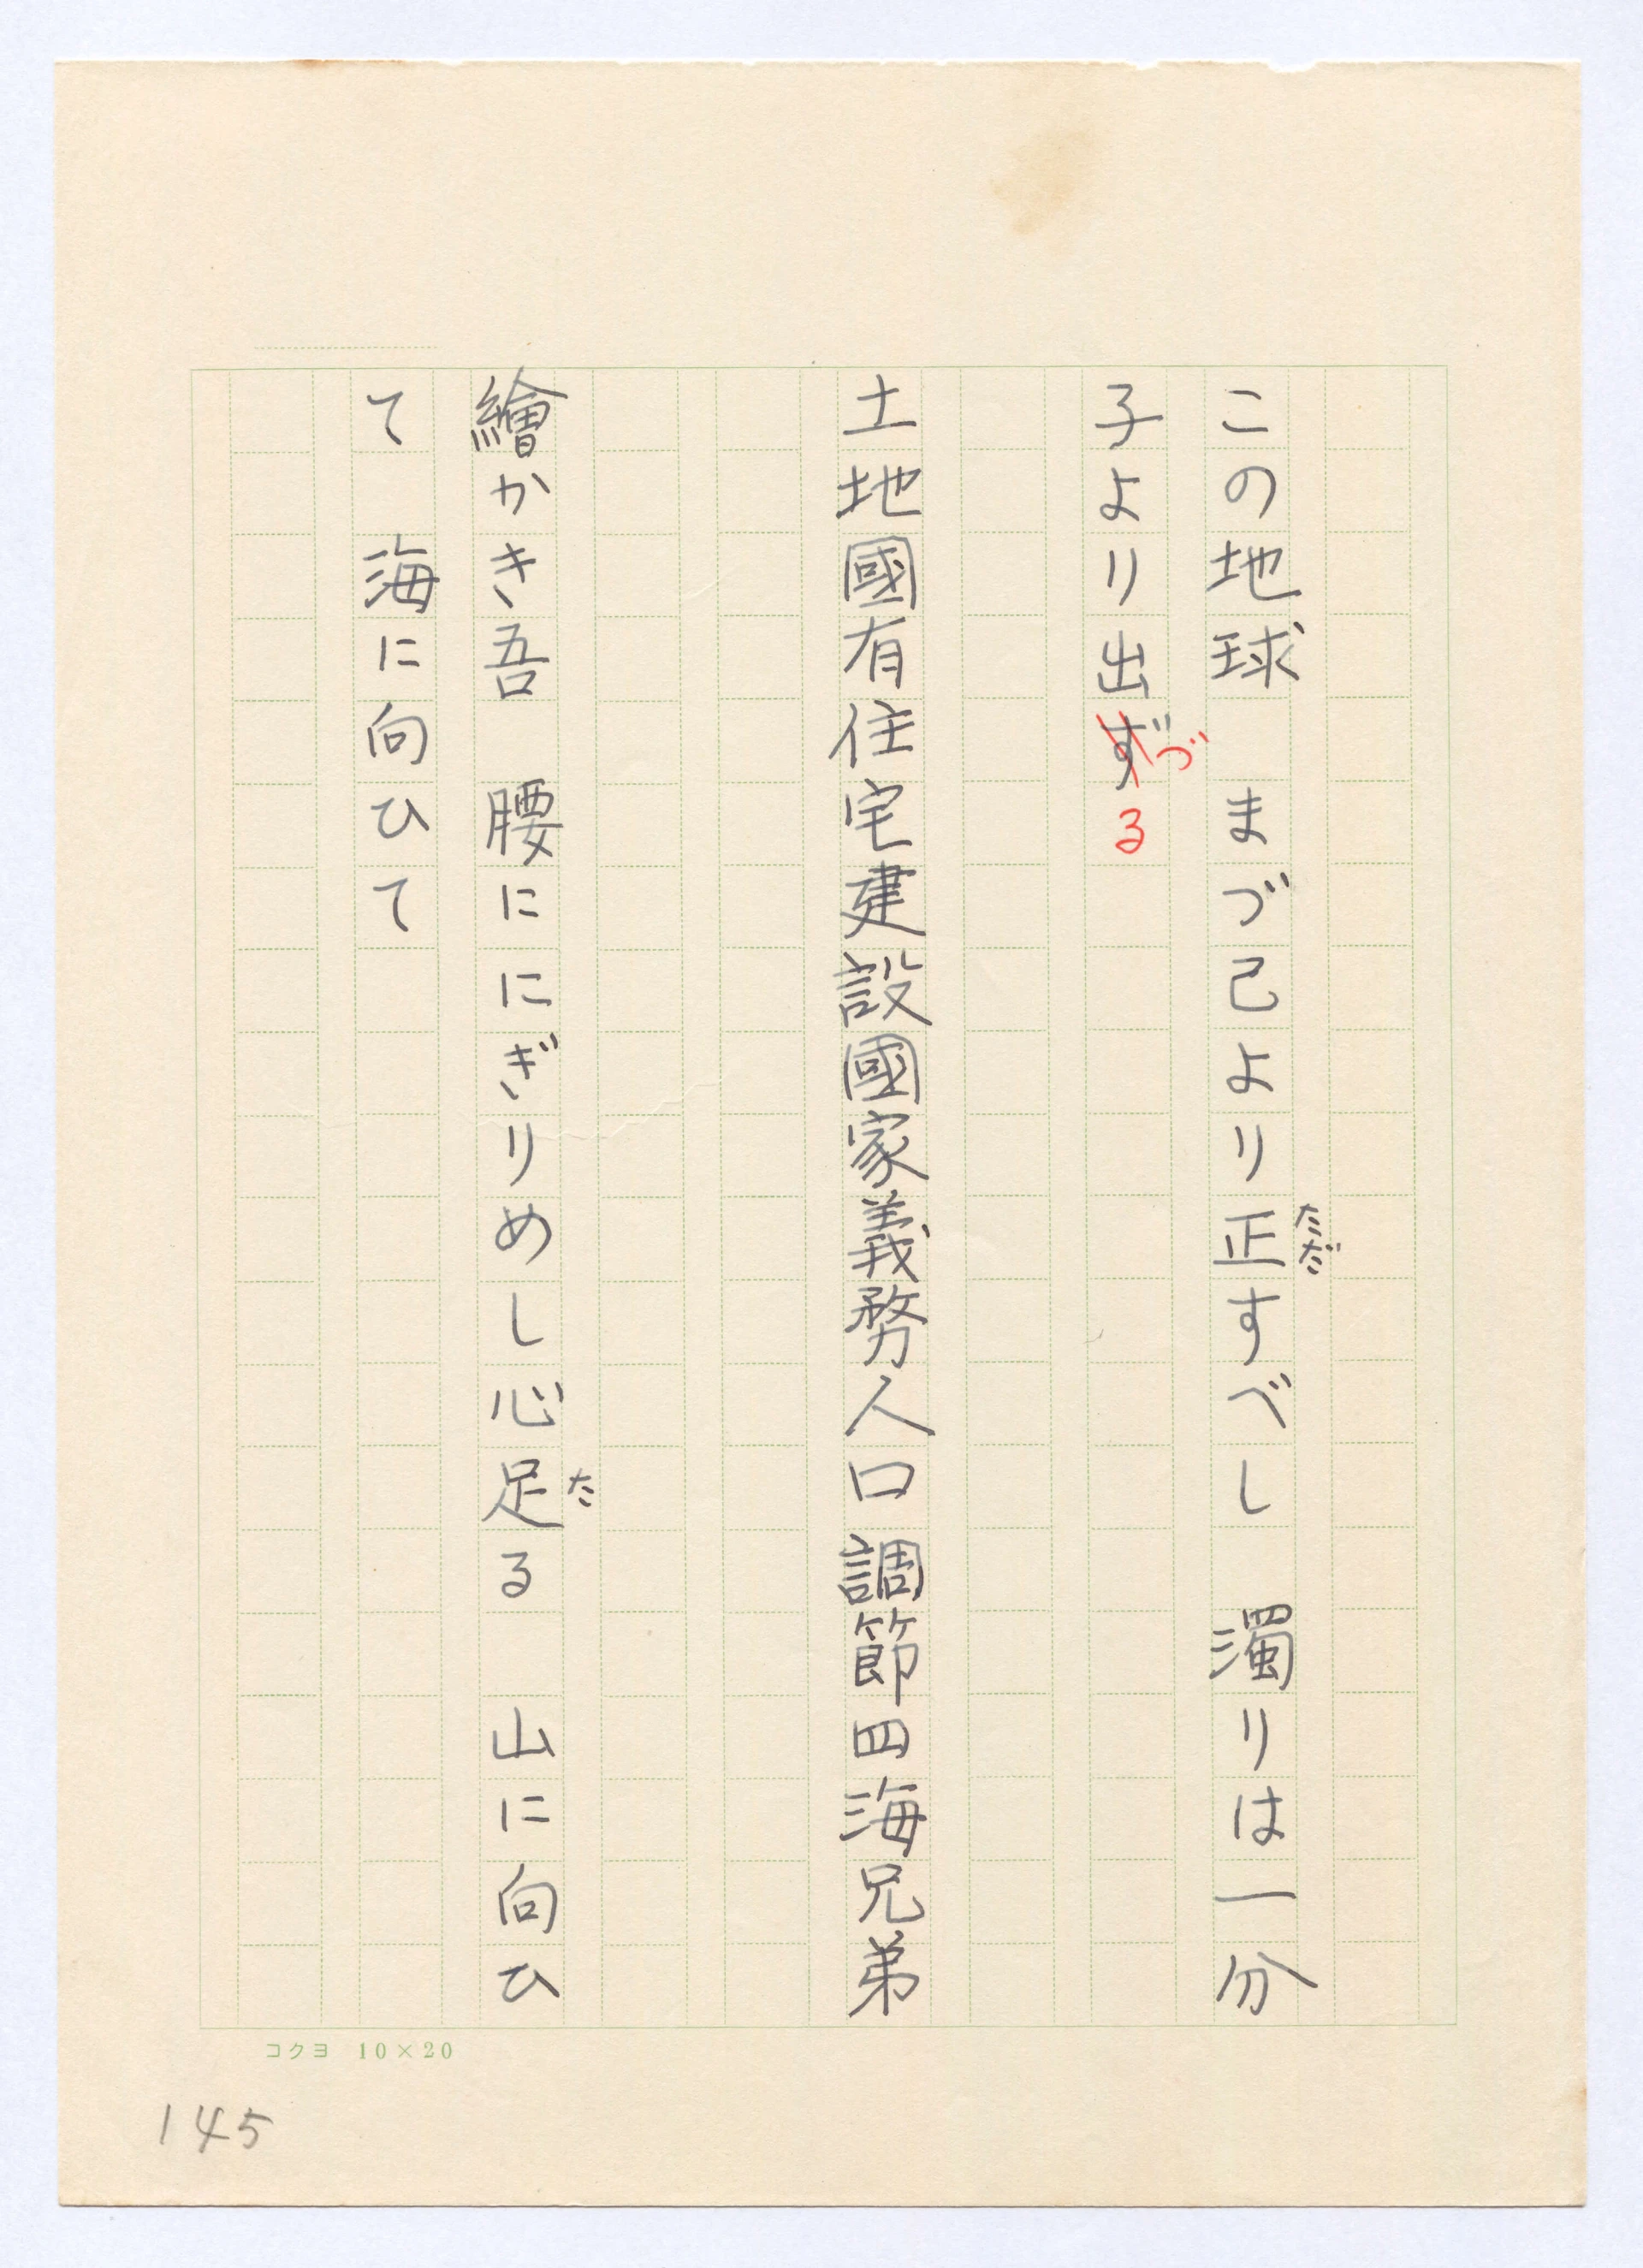 この地球　まづ己より正すべし　濁りは一分
ただ
子より出ずる
づ
土地國有住宅建設國家義務人口調節四海兄弟
繪かき吾　腰ににぎりめし心足る　山に向ひ
た
て　海に向ひて
コクヨ 10×20
145